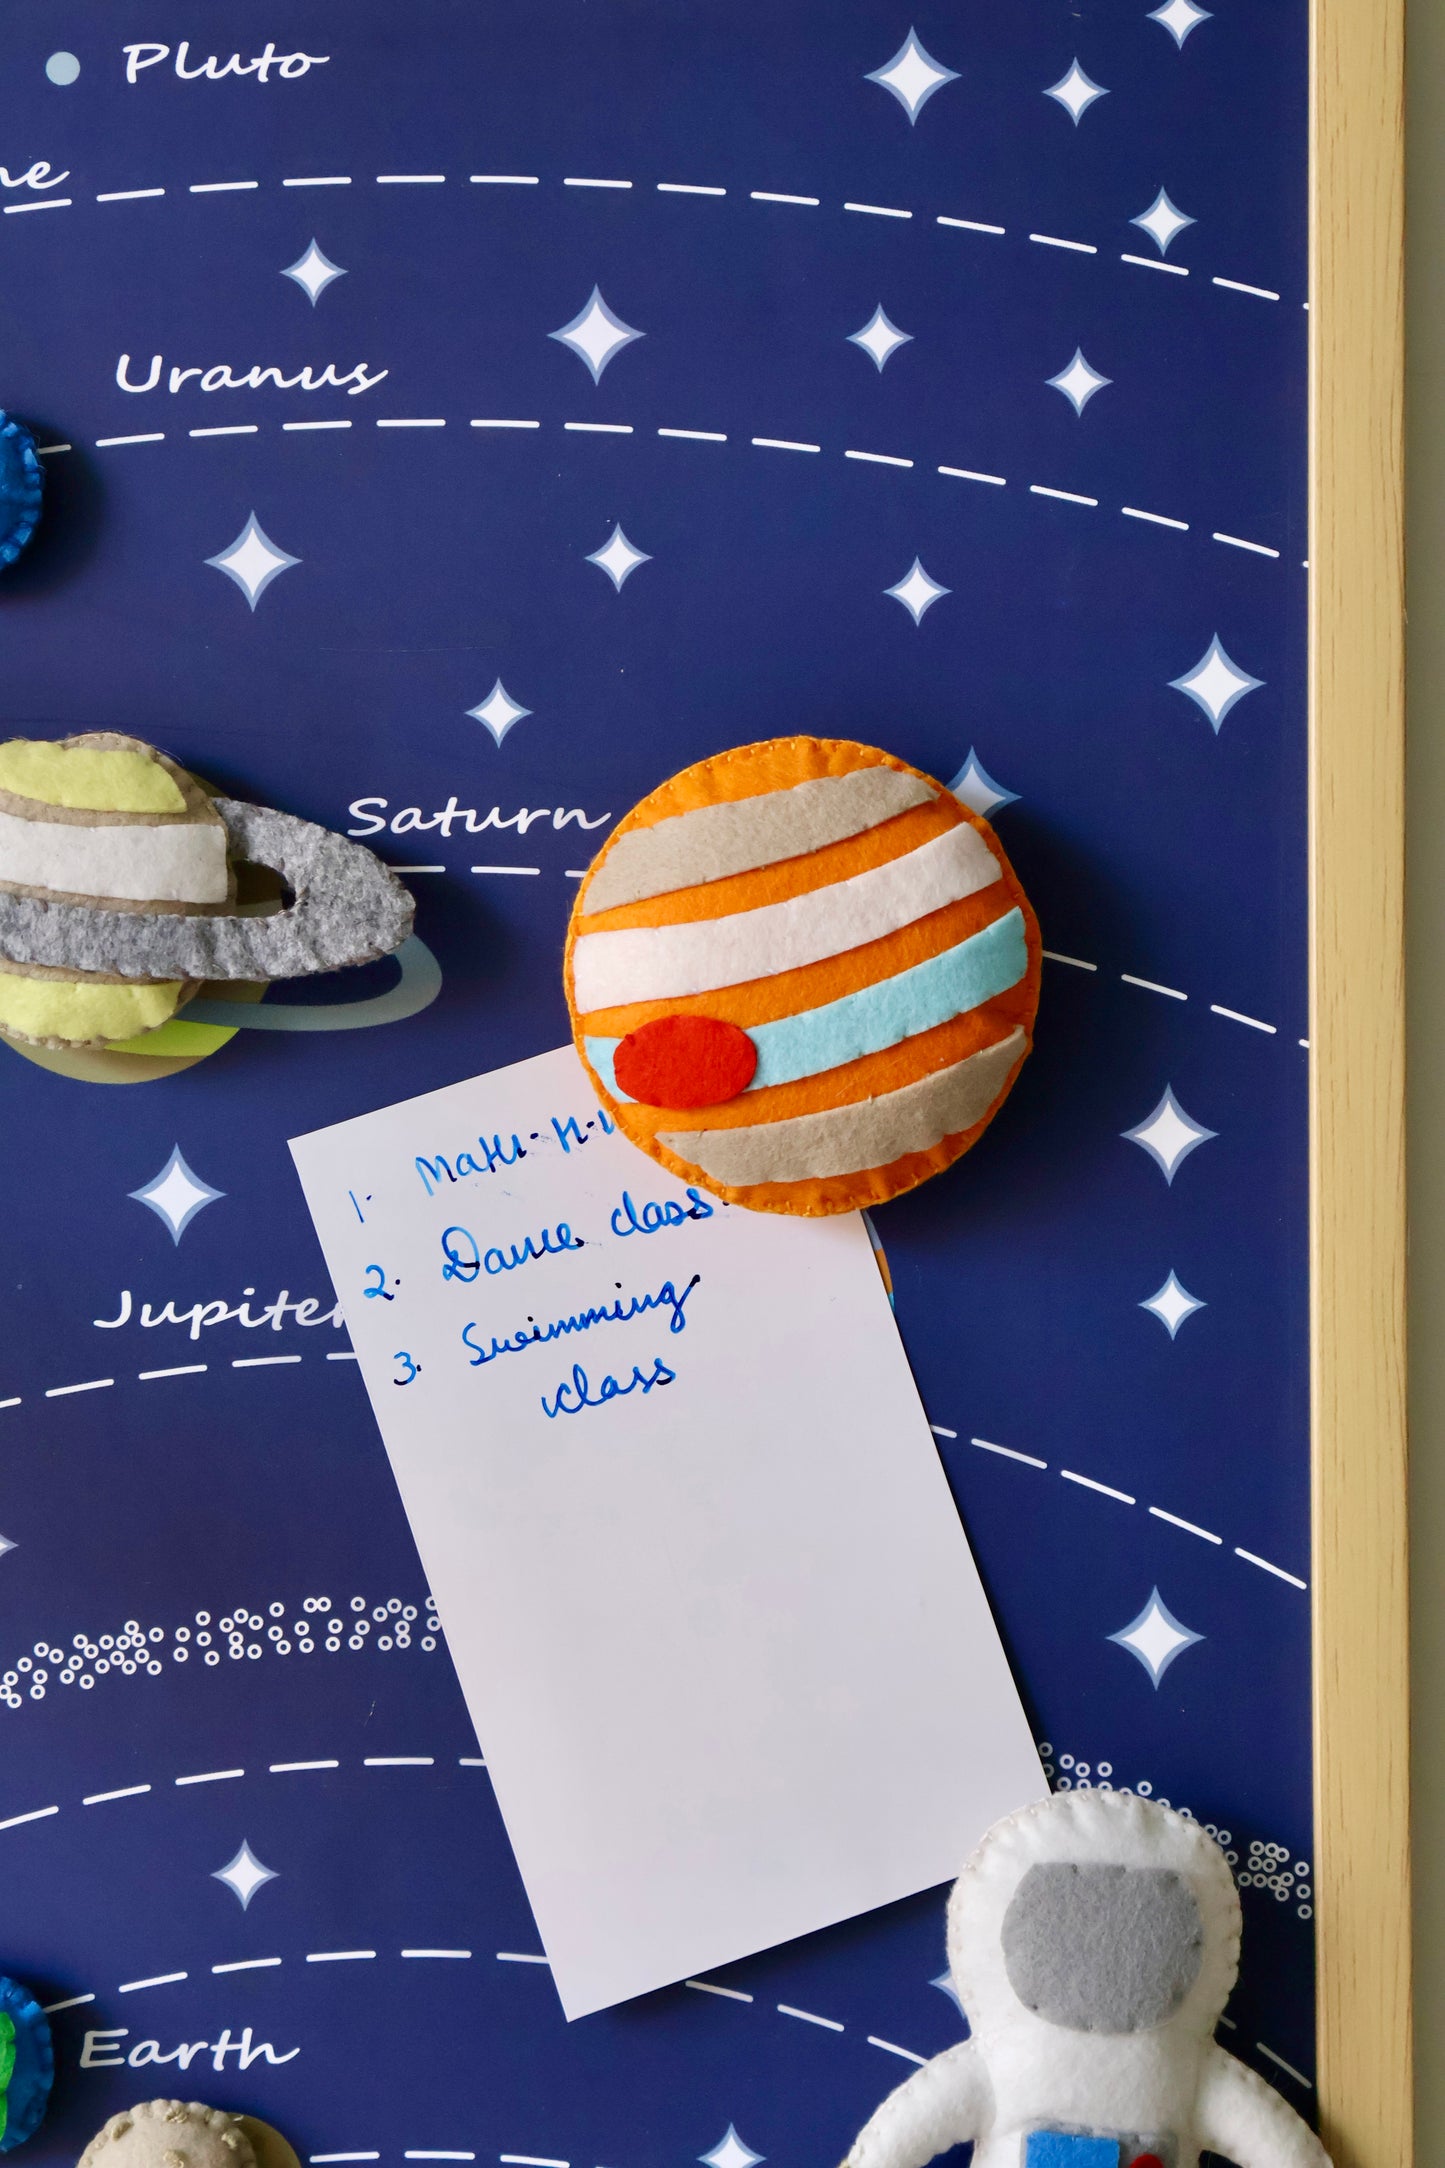 Pluto
ne
Uranus
Saturn
1. Math. H.
2. Dance class.
Jupiter
3. Swimming
class
Earth